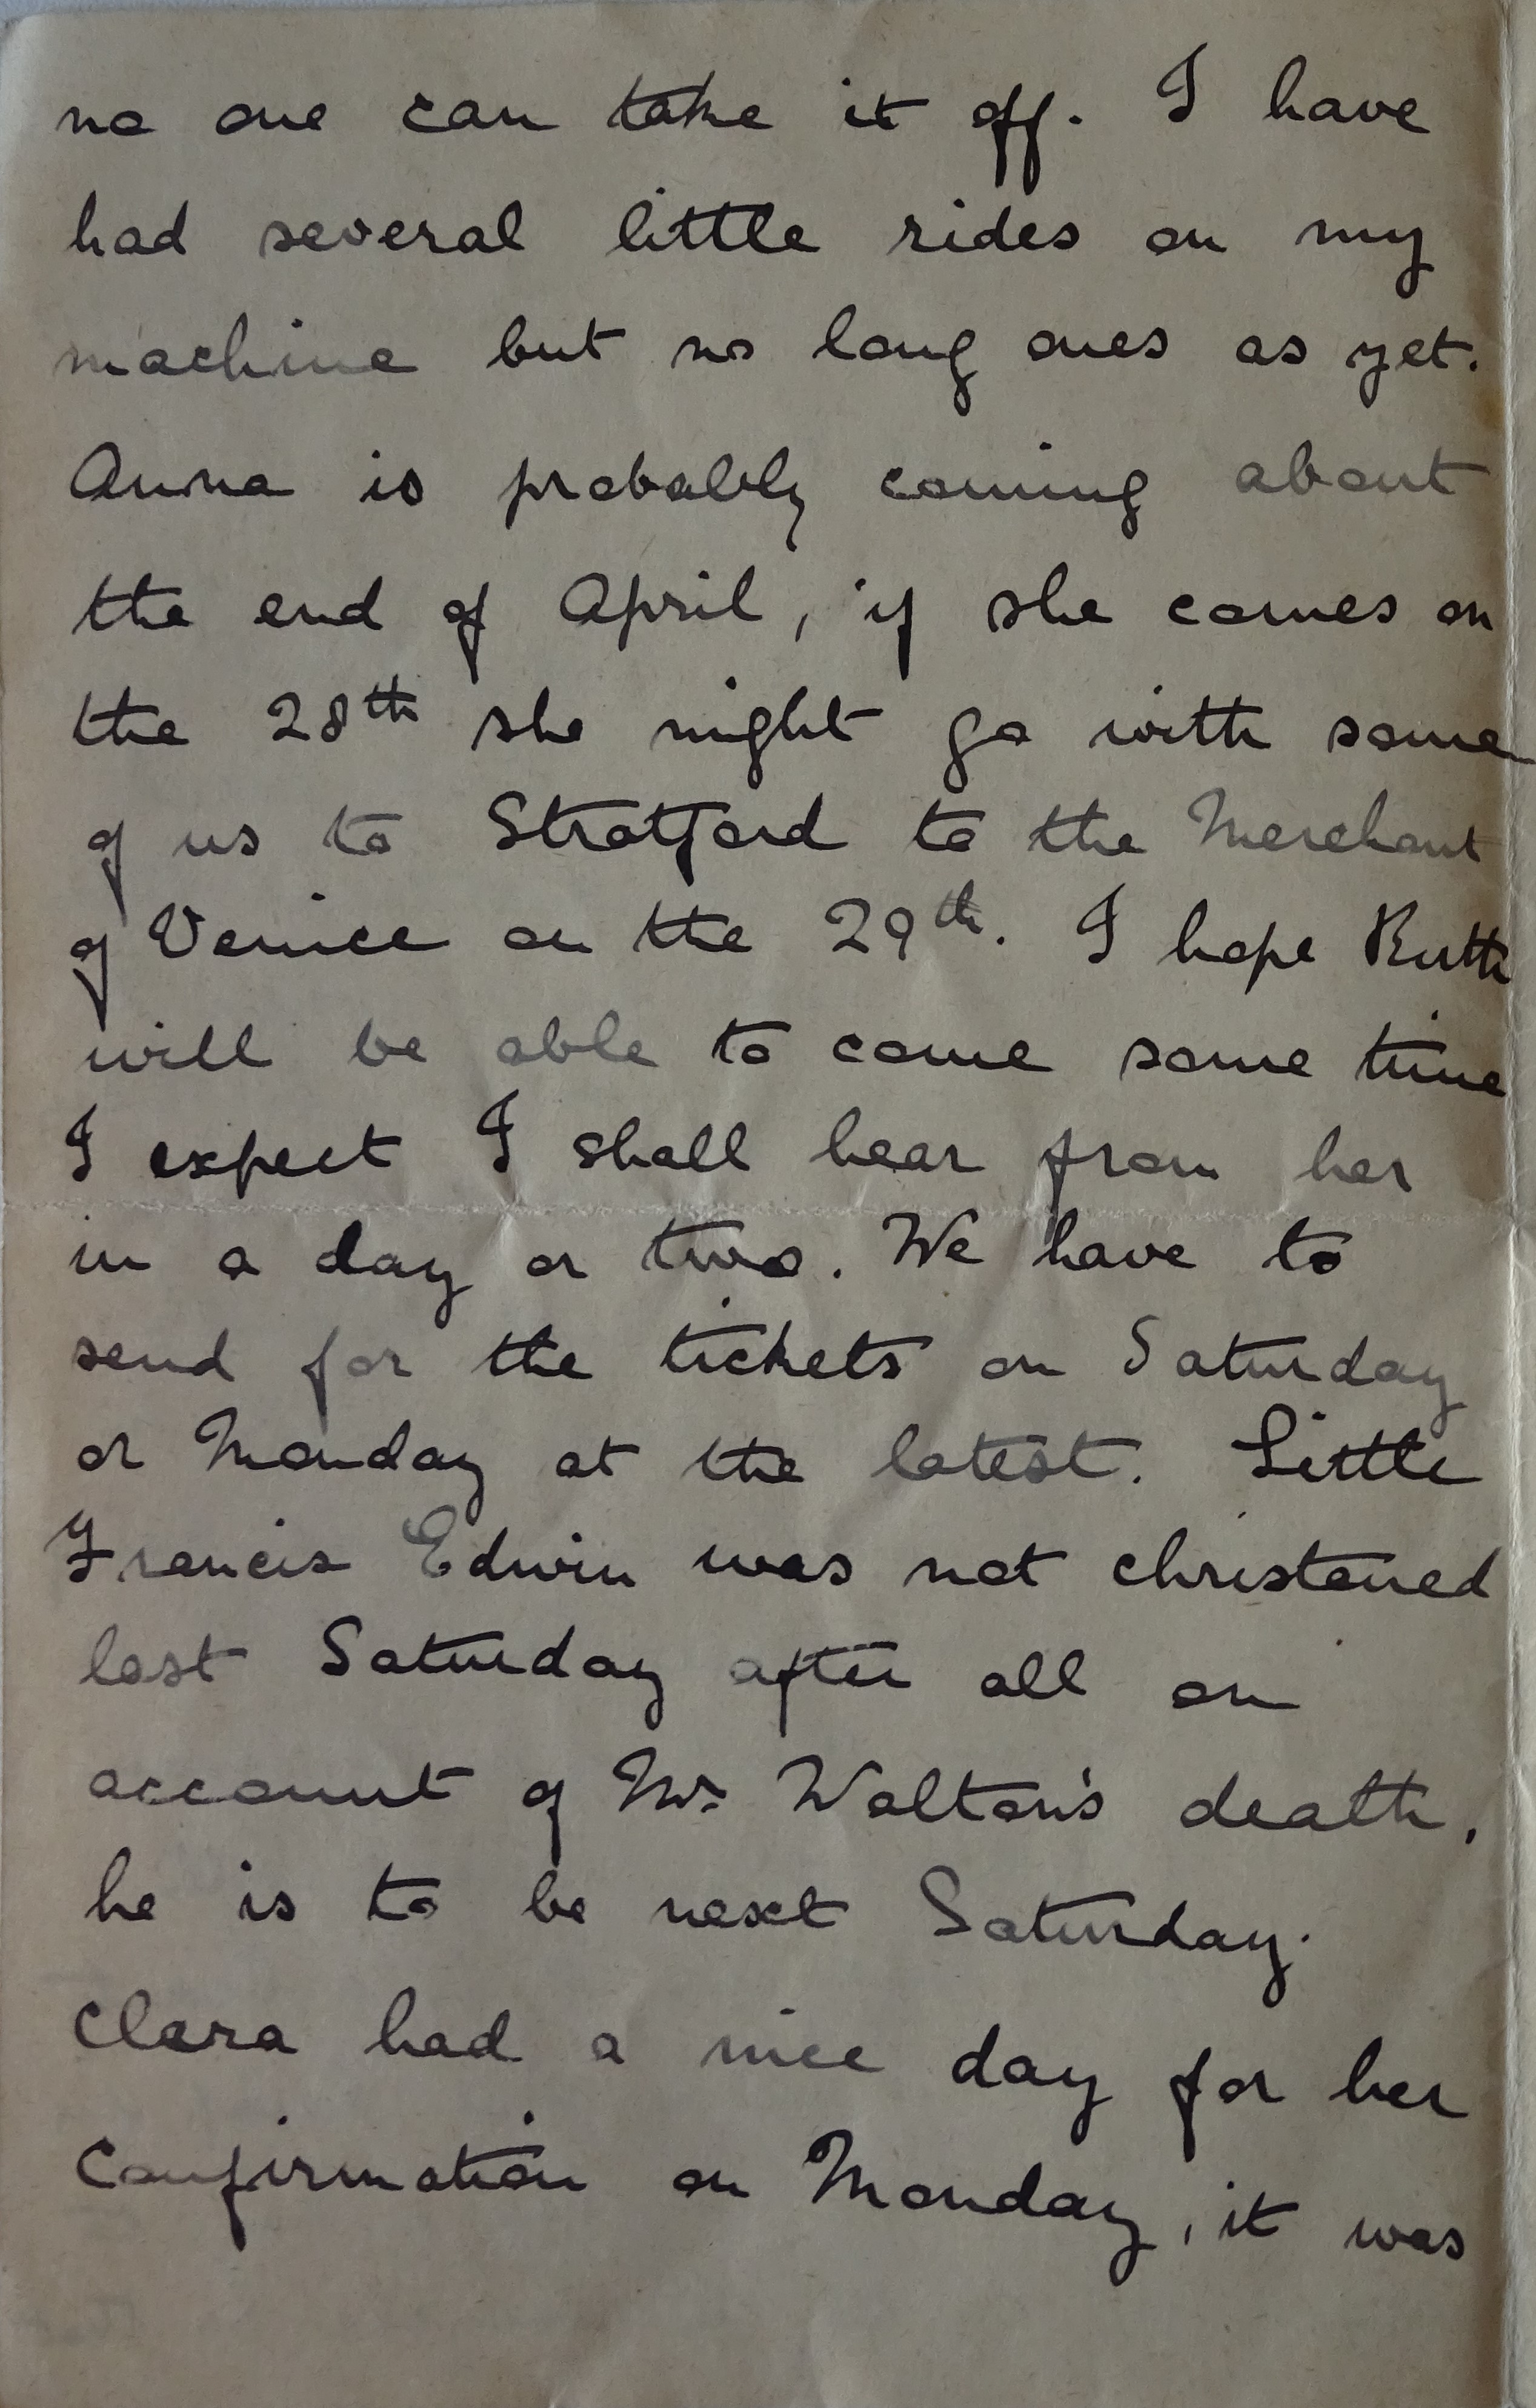 no one can take it off. I have
had several little rides on my
machine but no long ones as yet.
Anna is probably coming about
the end of April, if she comes on
the 28th she might go with some
of us to Stratford to the Merchant
of Venice on the 29th. I hope Ruth
will be able to come some time
I expect I shall hear from her
in a day or two. We have to
send for the tickets on Saturday
or Monday at the latest. Little
Francis Edwin was not christened
last Saturday after all on
account of Mr. Walton's death,
he is to be next Saturday.
Clara had a nice day for her
Confirmation on Monday, it was